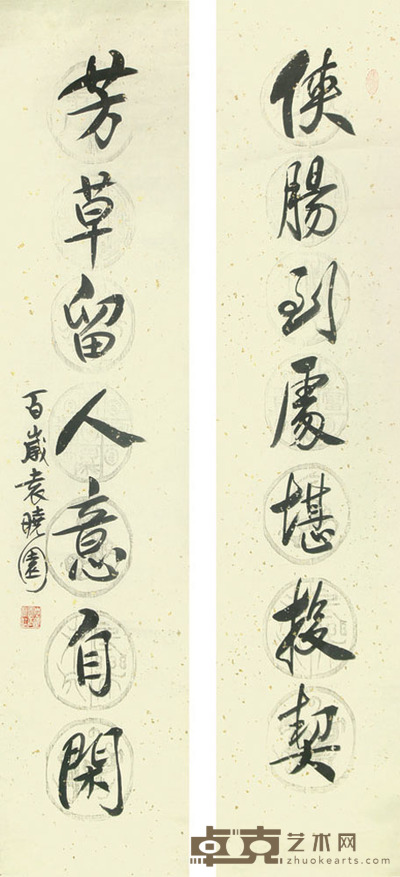 侠腸到處堪投契
芳草留人意自閑
百歲袁曉園
卓克艺术网
zhuokearts.com